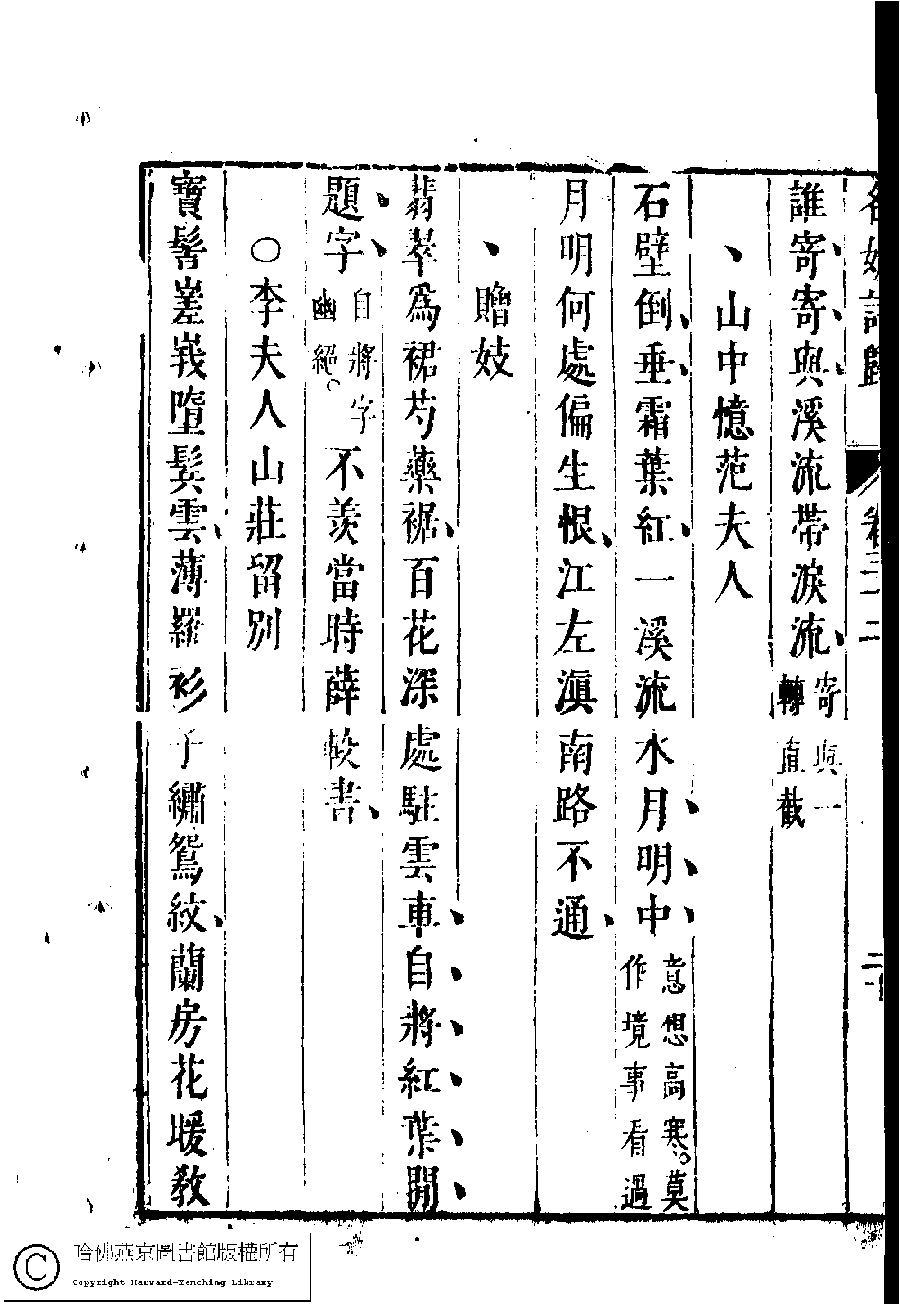 名媛詩歸 卷三二
誰寄寄與溪流帶淚流寄與一轉直截
山中憶范夫人
石壁倒垂霜葉紅一溪流水月明中意想高寒莫作境事看過
月明何處偏生恨江左滇南路不通
贈妓
翡翠爲裙芍藥裾百花深處駐雲車自將紅葉開
題字自將字幽絕不羨當時薛較書
○李夫人山莊留別
寶髻嵳峩墮鬂雲薄羅衫子繡鴛紋蘭房花暖敎
哈佛燕京圖書館版權所有
Copyright Harvard-Yenching Library